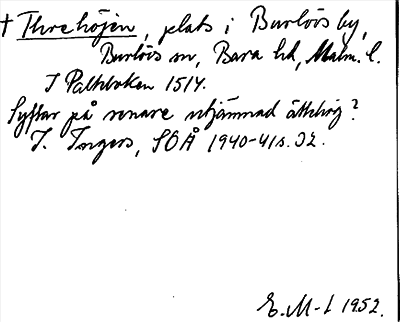 † Threhöjen, plats i Burlövs by,
Burlövs sn, Bara hd, Malm. l.
I Palteboken 1514.
Syftar på senare utjämnad ätthög?
I. Ingers, SOÅ 1940-41 s. 32.
E. M-L 1952.